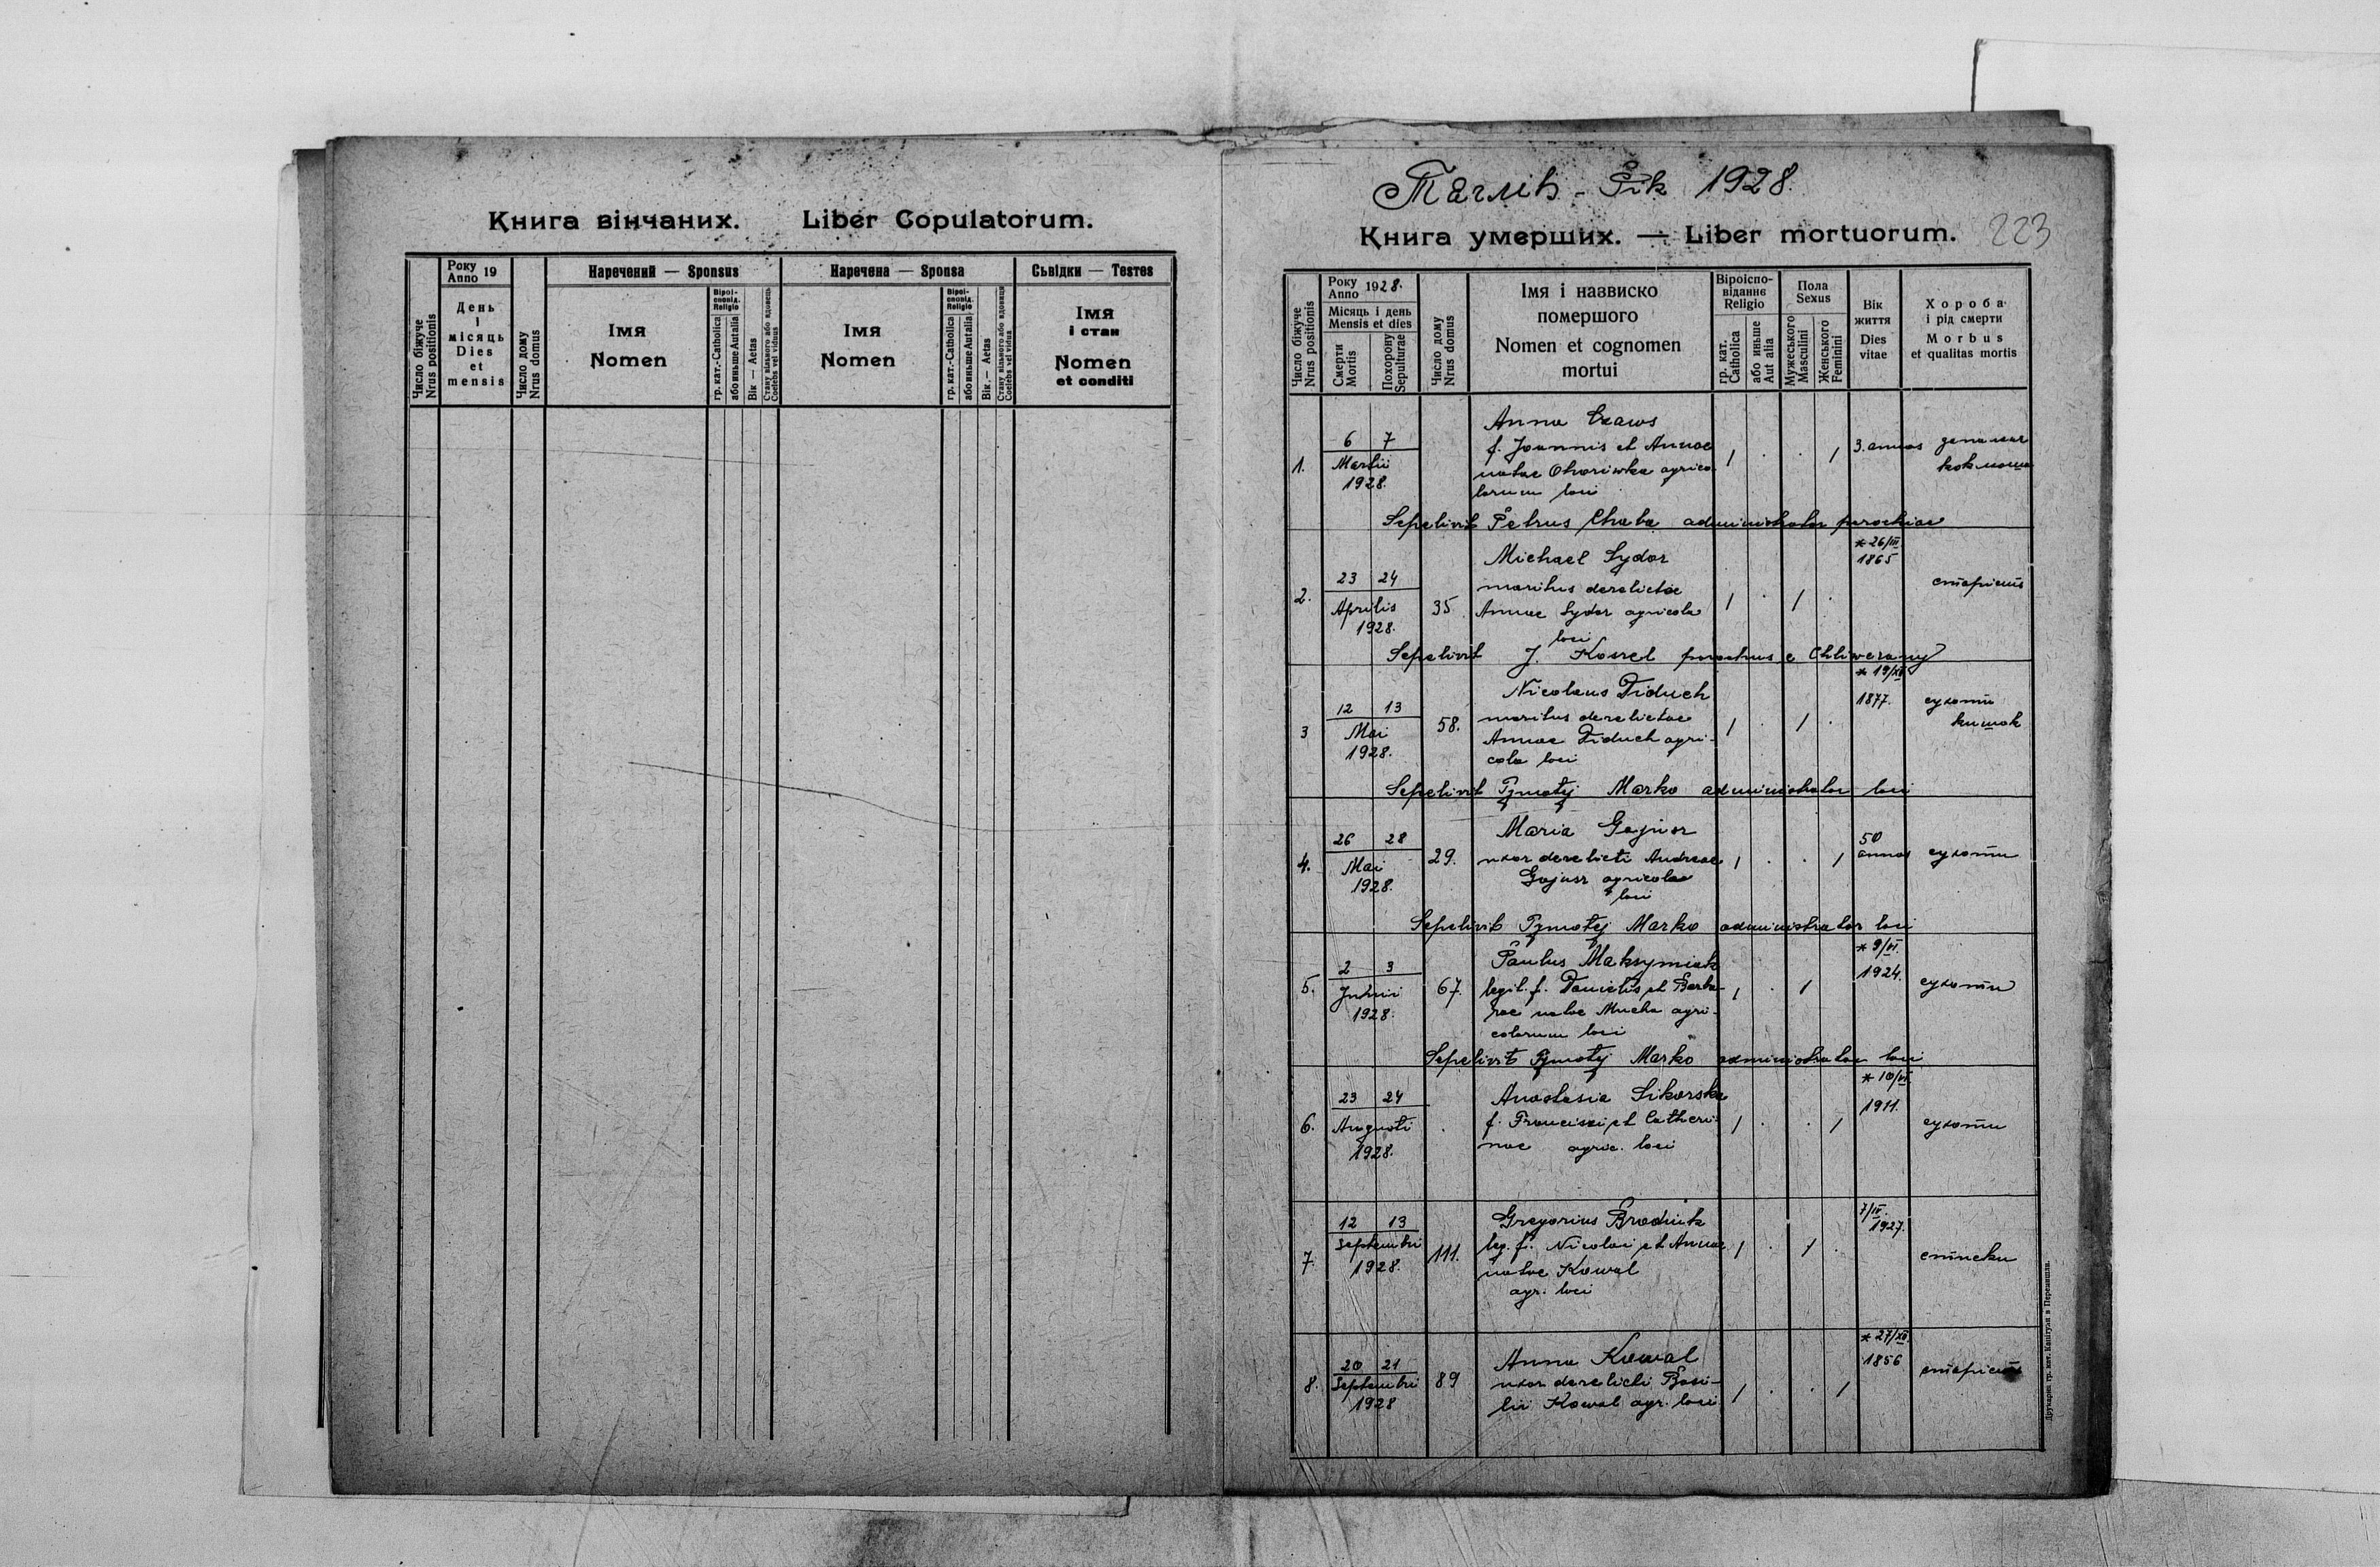 Книга вінчаних. Liber Copulatorum.
Число біжуче
Nrus positionis
Року
Anno 19
День
і
місяць
Dies
et
mensis
Число дому
Nrus domus
Наречений — Sponsus
Імя
Nomen
Віроі-
сповід.
Religio
гр. кат.-Catholica
або иньше Aut alia
Вік — Aetas
Стану вільного або вдовець
Coelebs vel viduus
Наречена — Sponsa
Імя
Nomen
Віроі-
сповід.
Religio
гр. кат.-Catholica
або иньше Aut alia
Вік.— Aetas
Стану вільного або вдовиця
Coelebs vel vidua
Сьвідки — Testes
Імя
і стан
Nomen
et conditi
Рік 1928.
Книга умерших. — Liber mortuorum. 223
Число біжуче
Nrus positionis
Року
Anno 1928.
Місяць і день
Mensis et dies
Смерти
Mortis
Похорону
Sepulturae
Число дому
Nrus domus
Імя і назвиско
помершого
Nomen et cognomen
mortui
Віроіспо-
віданнє
Religio
гр. кат.
Catholica
або иньше
Aut alia
Пола
Sexus
Мужеського
Masculini
Женського
Feminini
Вік
життя
Dies
vitae
Хороба
і рід смерти
Morbus
et qualitas mortis
1. 6 7 Martii 1928.
Anna
f. Joannis et Annae
natae agrico-
larum loci
/ . . / 3. annos
Sepelivit Petrus Chaba administrator parochiae
2. 23 24 Aprilis 1928. 35.
Michael Sydor
maritus derelictae
Annae Sydor agricola
loci
/ . / . * 26/III 1865 старість
Sepelivit J. Kossel parochus e Chliwczany
3 12 13 Mai 1928. 58.
Nicolaus Diduch
maritus derelictae
Annae Diduch agri-
cola loci
/ . / . * 19/XII 1877. сухоти
кишок
Sepelivit Tymotej Marko administrator loci
4. 26 28 Mai 1928. 29.
Maria Gajusz
uxor derelicti Andreae
Gajusz agricolae
loci
/ . . / 50 annos сухоти
Sepelivit Tymotej Marko administrator loci
5. 2 3 Junii 1928. 67.
Paulus Maksymiak
legit. f. Danielis et Barba-
rae natae Mucha agri-
colarum loci
/ . / * 9/VI. 1924. сухоти
Sepelivit Tymotej Marko administrator loci
6. 23 24 Augusti 1928. .
Anastasia Sikorska
f. Francisci et Catheri-
nae agric. loci
/ . . / * 10/VI. 1911. сухоти
7. 12 13 Septembri 1928. 111.
Gregorius Brodiuk
leg. f. Nicolai et Annae
natae Kowal
agr. loci
/ . / . 7/IV. 1927.
8. 20 21 Septembri 1928 89
Anna Kowal
uxor derelicti Basi-
lii Kowal agr. loci.
/ . . / * 27/XII. 1856 старість